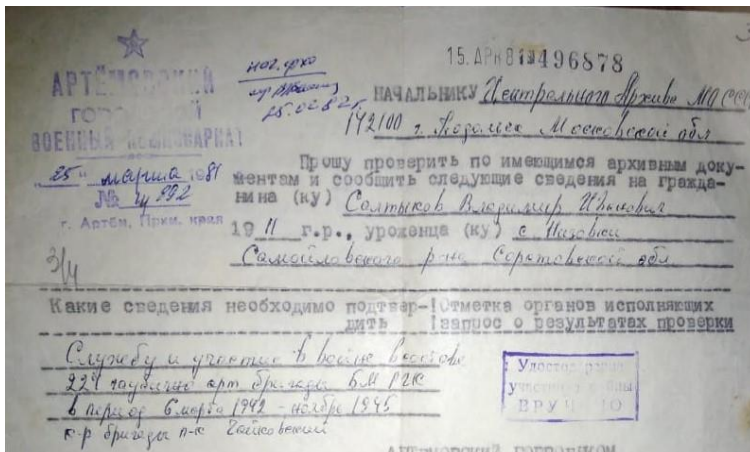 15. АПР 81 496878
АРТЁМОВСКИЙ
ГОРОДСКОЙ
ВОЕННЫЙ КОМИССАРИАТ
25 марта 1981
№ 992
г. Артём, Прим. края
НАЧАЛЬНИКУ Центрального Архива МО СССР
142100 г. Подольск Московской обл
Прошу проверить по имеющимся архивным доку-
ментам и сообщить следующие сведения на гражда-
нина (ку) Салтыков Владимир Иванович
19 11 г.р., уроженца (ку) с.
Самойловского р-на Саратовской обл.
3/4
Какие сведения необходимо подтвер-!Отметка органов исполняющих
дить !запрос о результатах проверки
Службу и участие в войне в составе
арт бригады БМ РГК
в период 1942 - ноябрь 1945
к-р бригады п-к Чайковский
Удостоверение
участника войны
ВРУЧЕНО